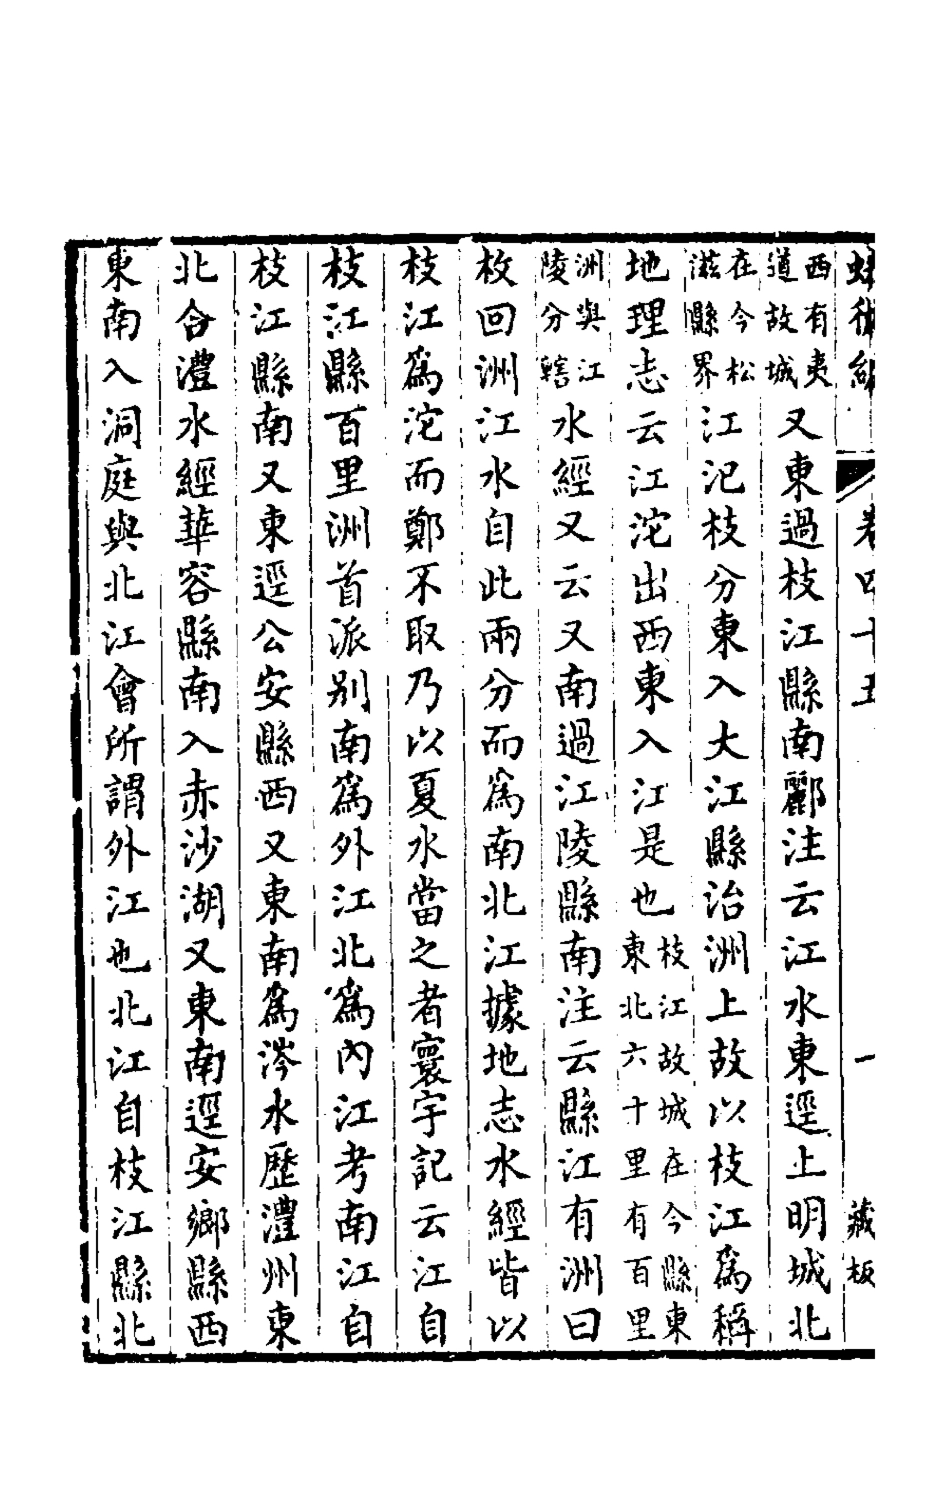 蛾術編 卷四十五 一 藏板
西有夷道故城又東過枝江縣南酈注云江水東逕上明城北
在今松滋縣界江汜枝分東入大江縣治洲上故以枝江爲稱
地理志云江沱出西東入江是也枝江故城在今縣東東北六十里有百里
洲與江陵分轄水經又云又南過江陵縣南注云縣江有洲曰
枚回洲江水自此兩分而爲南北江據地志水經皆以
枝江爲沱而鄭不取乃以夏水當之者寰宇記云江自
枝江縣百里洲首派别南爲外江北爲內江考南江自
枝江縣南又東逕公安縣西又東南爲涔水歷澧州東
北合澧水經華容縣南入赤沙湖又東南逕安鄉縣西
東南入洞庭與北江會所謂外江也北江自枝江縣北